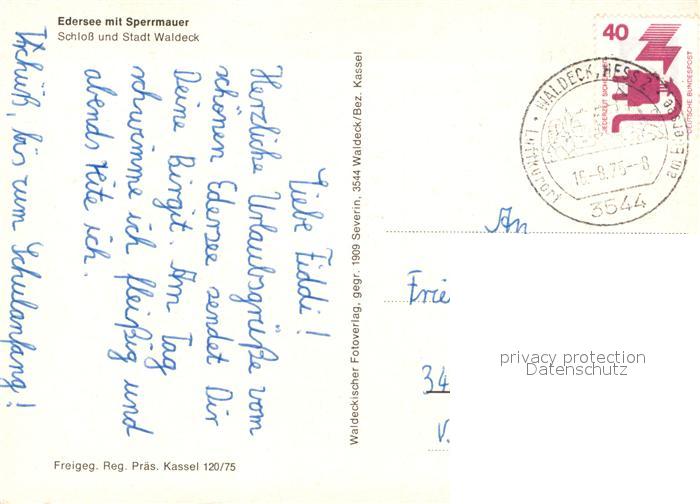 Edersee mit Sperrmauer
Schloß und Stadt Waldeck
Liebe Fiddi!
Herzliche Urlaubsgrüße vom
schönen Edersee sendet Dir
Deine Birgit. Am Tag
schwimme ich fleißig und
abends reite ich.
Tschüß, bis zum Schulanfang!
Freigeg. Reg. Präs. Kassel 120/75
Waldeckischer Fotoverlag, gegr. 1909 Severin, 3544 Waldeck/Bez. Kassel
40
JEDERZEIT SICHERHEIT
DEUTSCHE BUNDESPOST
WALDECK, HESS 2
-8
3544
Luftkurort
An
Frie
34
V.
privacy protection
Datenschutz